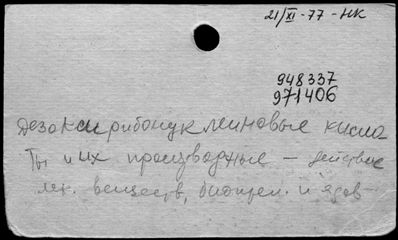 21/XI-77-НК
948337
971406
Дезоксирибонуклеиновые кисло-
ты и их производные - действие
лек. веществ, биопреп. и ядов-